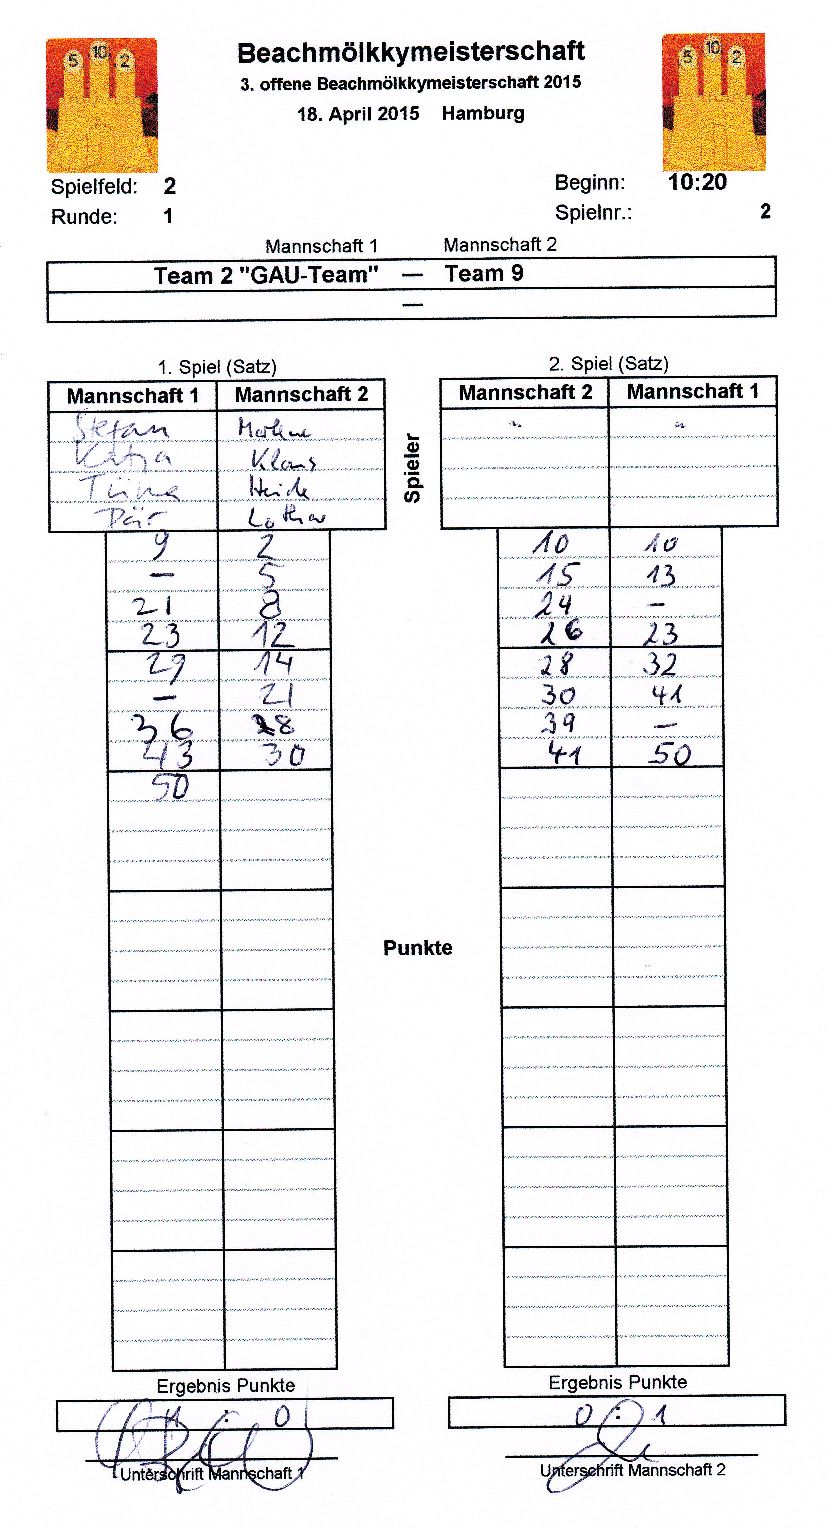 5 10 2
5 10 2
Beachmölkkymeisterschaft
3. offene Beachmölkkymeisterschaft 2015
18. April 2015 Hamburg
Spielfeld: 2
Beginn: 10:20
Runde: 1
Spielnr.: 2
Mannschaft 1 Mannschaft 2
Team 2 "GAU-Team" — Team 9
—
1. Spiel (Satz) 2. Spiel (Satz)
Mannschaft 1 Mannschaft 2 Mannschaft 2 Mannschaft 1
Stefan " "
Katja Klaus
Spieler
Tiina Heide
Pär Lothar
9 2 10 10
— 5 15 13
21 8 24 –
23 12 26 23
29 14 28 32
— 21 30 41
36 28 39 —
43 30 41 50
50
Punkte
Ergebnis Punkte Ergebnis Punkte
1 : 0 0 : 1
Unterschrift Mannschaft 1 Unterschrift Mannschaft 2